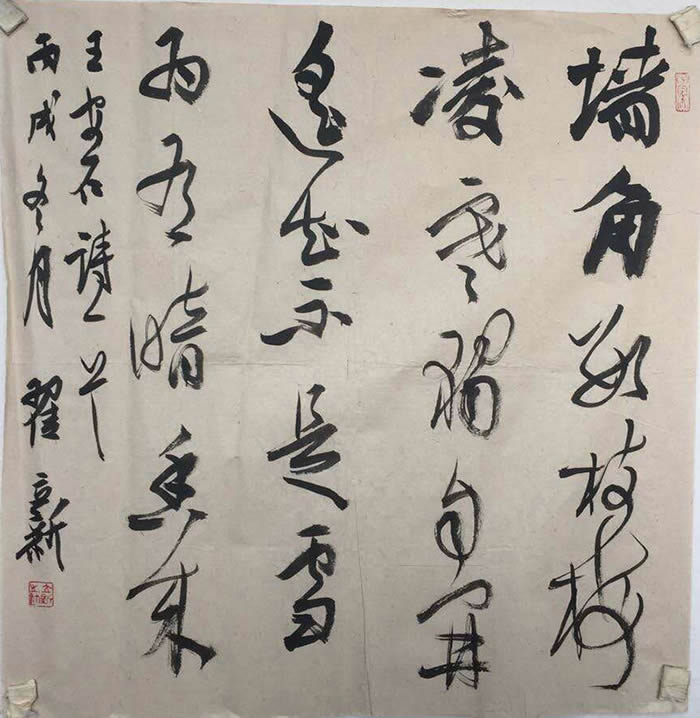 墙角数枝梅
凌寒獨自開
遥知不是雪
为有暗香来
王安石詩一首
丙戌冬月 翟立新